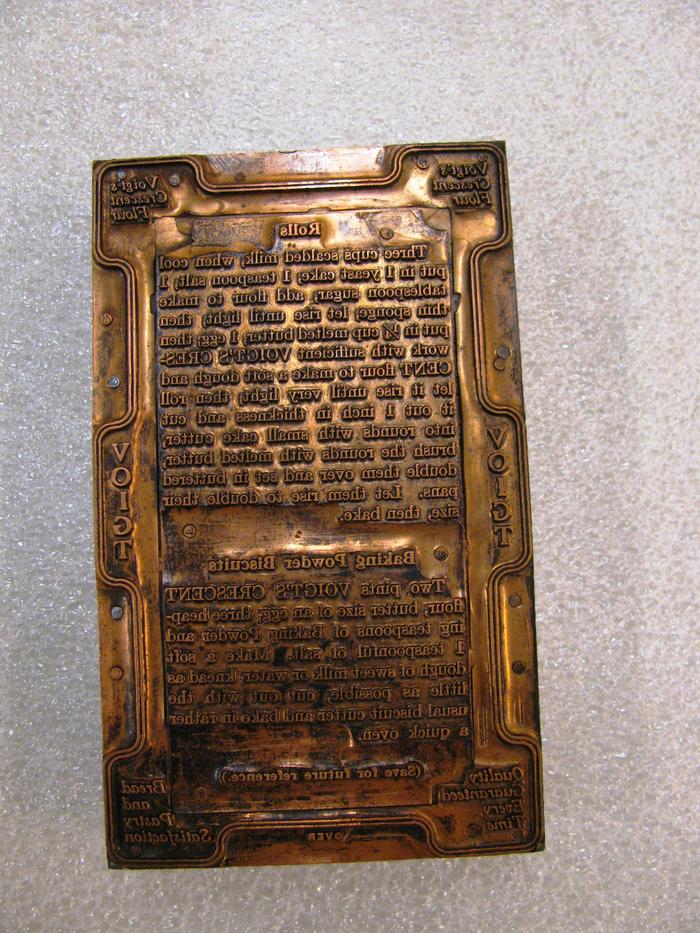 Voigt's
Crescent
Flour
Voigt's
Crescent
Flour
Rolls
Three cups scalded milk, when cool
put in 1 yeast cake, 1 teaspoon salt, 1
tablespoon sugar, add flour to make
thin sponge; let rise until light, then
put in ¼ cup melted butter, 1 egg, then
work with sufficient VOIGT'S CRES-
CENT flour to make a soft dough and
let it rise until very light, then roll
it out 1 inch in thickness and cut
into rounds with small cake cutter,
brush the rounds with melted butter,
double them over and set in buttered
pans. Let them rise to double their
size, then bake.
VOIGT
VOIGT
Baking Powder Biscuits
Two pints VOIGT'S CRESCENT
flour, butter size of an egg, three heap-
ing teaspoons of Baking Powder and
1 teaspoonful of salt. Make a soft
dough of sweet milk or water, knead as
little as possible, cut out with the
usual biscuit cutter and bake in rather
a quick oven.
(Save for future reference.)
Quality
Guaranteed
Every
Time
Bread
and
Pastry
Satisfaction
OVER